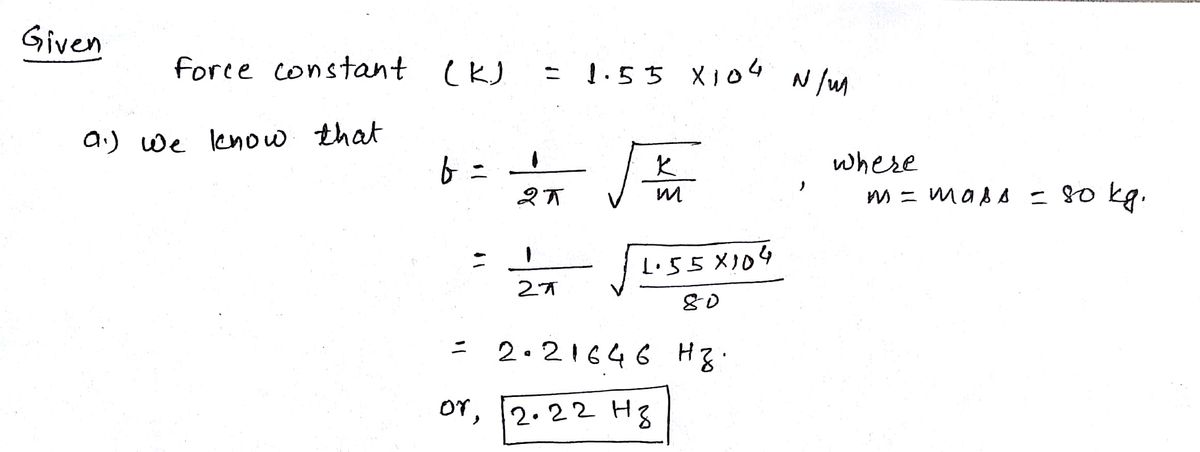 Given
Force constant (K) = 1.55 X10⁴ N/m
a.) we know that
f = 1/2π √(K/m) , where
m = mass = 80 kg.
= 1/2π √(1.55 X10⁴/80)
= 2.21646 Hz.
or, 2.22 Hz